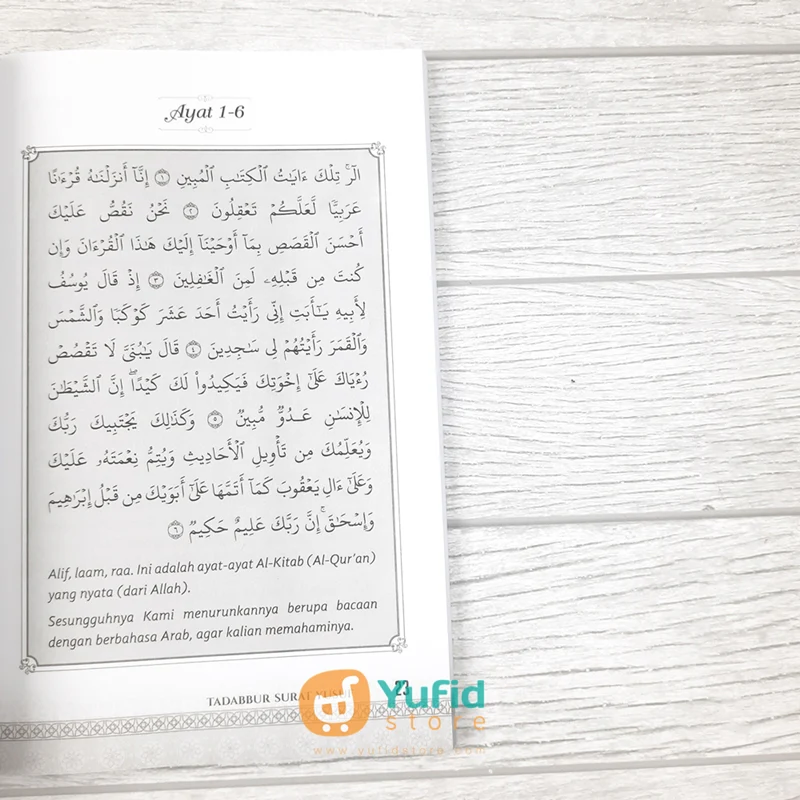 Ayat 1-6
الٓرۚ تِلۡكَ ءَايَٰتُ ٱلۡكِتَٰبِ ٱلۡمُبِينِ ١ إِنَّآ أَنزَلۡنَٰهُ قُرۡءَٰنًا
عَرَبِيّٗا لَّعَلَّكُمۡ تَعۡقِلُونَ ٢ نَحۡنُ نَقُصُّ عَلَيۡكَ
أَحۡسَنَ ٱلۡقَصَصِ بِمَآ أَوۡحَيۡنَآ إِلَيۡكَ هَٰذَا ٱلۡقُرۡءَانَ وَإِن
كُنتَ مِن قَبۡلِهِۦ لَمِنَ ٱلۡغَٰفِلِينَ ٣ إِذۡ قَالَ يُوسُفُ
لِأَبِيهِ يَٰٓأَبَتِ إِنِّي رَأَيۡتُ أَحَدَ عَشَرَ كَوۡكَبٗا وَٱلشَّمۡسَ
وَٱلۡقَمَرَ رَأَيۡتُهُمۡ لِي سَٰجِدِينَ ٤ قَالَ يَٰبُنَيَّ لَا تَقۡصُصۡ
رُءۡيَاكَ عَلَىٰٓ إِخۡوَتِكَ فَيَكِيدُواْ لَكَ كَيۡدًاۖ إِنَّ ٱلشَّيۡطَٰنَ
لِلۡإِنسَٰنِ عَدُوّٞ مُّبِينٞ ٥ وَكَذَٰلِكَ يَجۡتَبِيكَ رَبُّكَ
وَيُعَلِّمُكَ مِن تَأۡوِيلِ ٱلۡأَحَادِيثِ وَيُتِمُّ نِعۡمَتَهُۥ عَلَيۡكَ
وَعَلَىٰٓ ءَالِ يَعۡقُوبَ كَمَآ أَتَمَّهَا عَلَىٰٓ أَبَوَيۡكَ مِن قَبۡلُ إِبۡرَٰهِيمَ
وَإِسۡحَٰقَۚ إِنَّ رَبَّكَ عَلِيمٌ حَكِيمٞ ٦
Alif, laam, raa. Ini adalah ayat-ayat Al-Kitab (Al-Qur'an)
yang nyata (dari Allah).
Sesungguhnya Kami menurunkannya berupa bacaan
dengan berbahasa Arab, agar kalian memahaminya.
TADABBUR SURAT YUSUF 23
Yufid
store
www.yufidstore.com